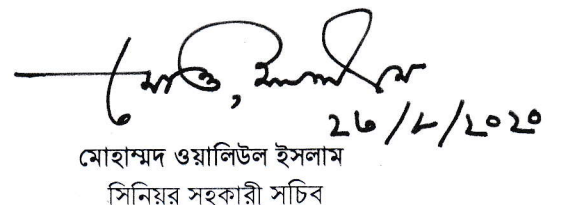 মোঃ ও, ইসলাম
২৬/৮/২০২০
মোহাম্মদ ওয়ালিউল ইসলাম
সিনিয়র সহকারী সচিব